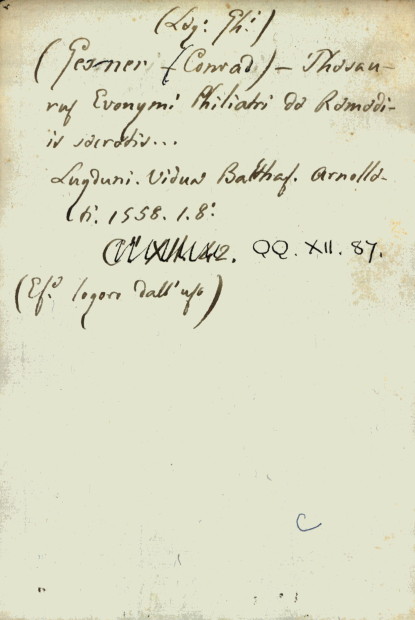 (Leg: Gh:)
(Gesner (Conrad) – Thesau-
rus Evonymi Philiatri de Remedi-
is secretis...
Lugduni. Vidua Balthas. Arnolle-
ti. 1558. 1. 8:
QQ. XII. 87.
(Es.e logoro dall'uso)
C